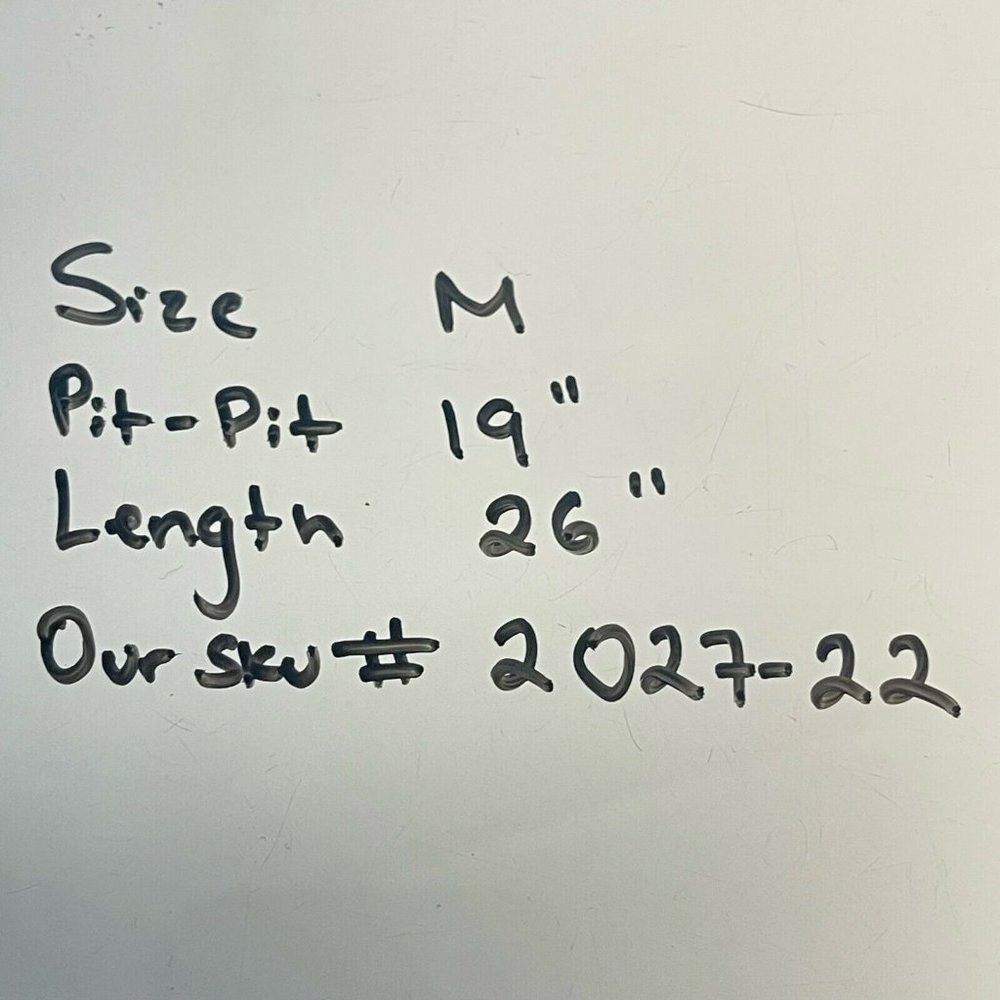 Size M
Pit-Pit 19"
Length 26"
Our Sku # 2027-22